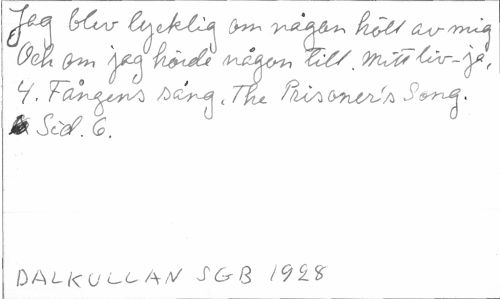 Jag blev lycklig om någon höll av mig
Och om jag hörde någon till. mitt liv-ja,
4. Fångens sång. The Prisoner's Song.
Sid. 6.
DALKULLAN SGB 1928